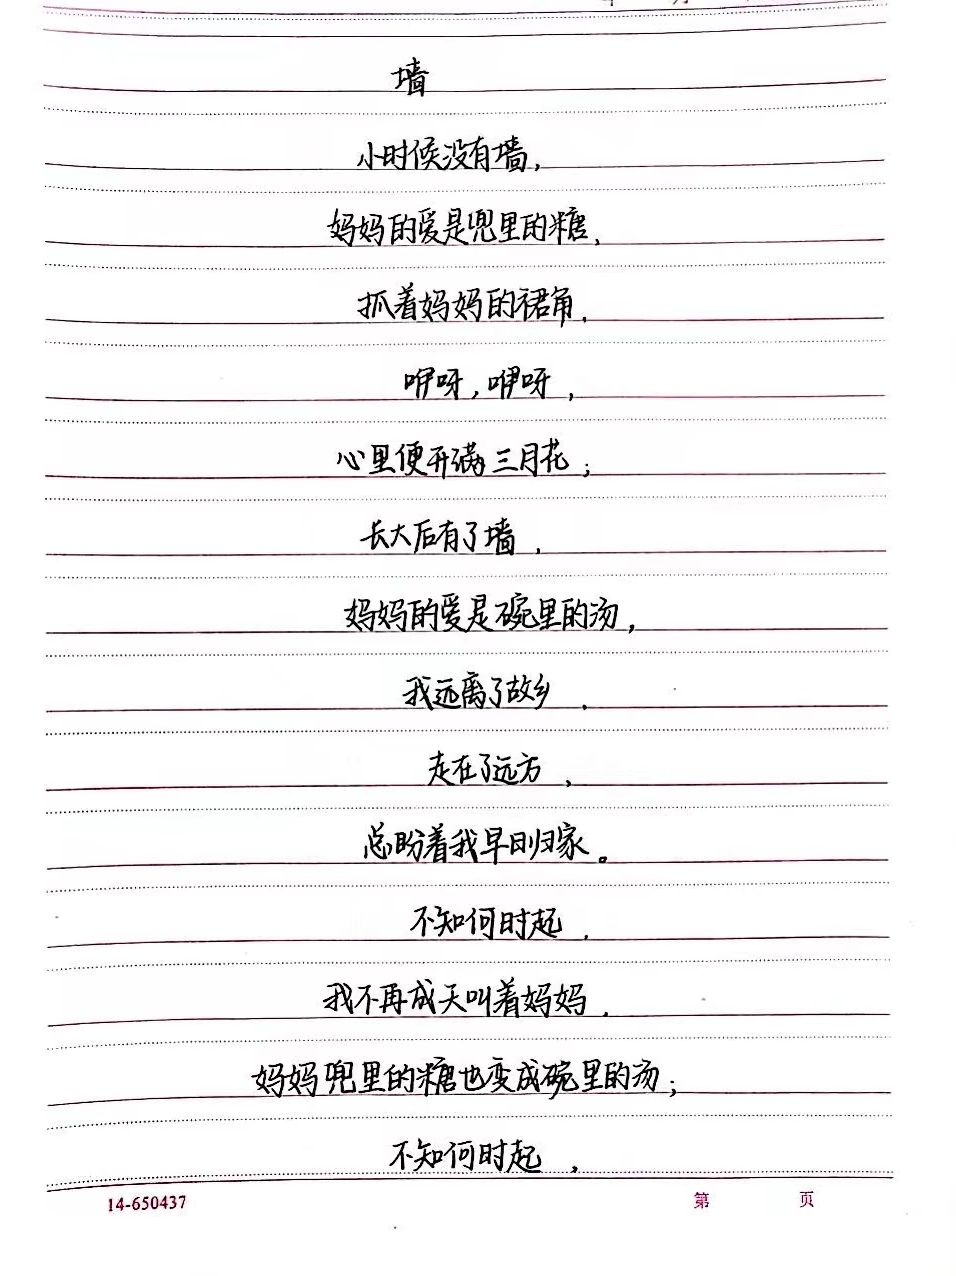 墙
小时候没有墙，
妈妈的爱是兜里的糖，
抓着妈妈的裙角，
咿呀，咿呀，
心里便开满三月花；
长大后有了墙，
妈妈的爱是碗里的汤，
我远离了故乡，
走在了远方，
总盼着我早日归家。
不知何时起，
我不再成天叫着妈妈，
妈妈兜里的糖也变成碗里的汤；
不知何时起，
14-650437 第 页